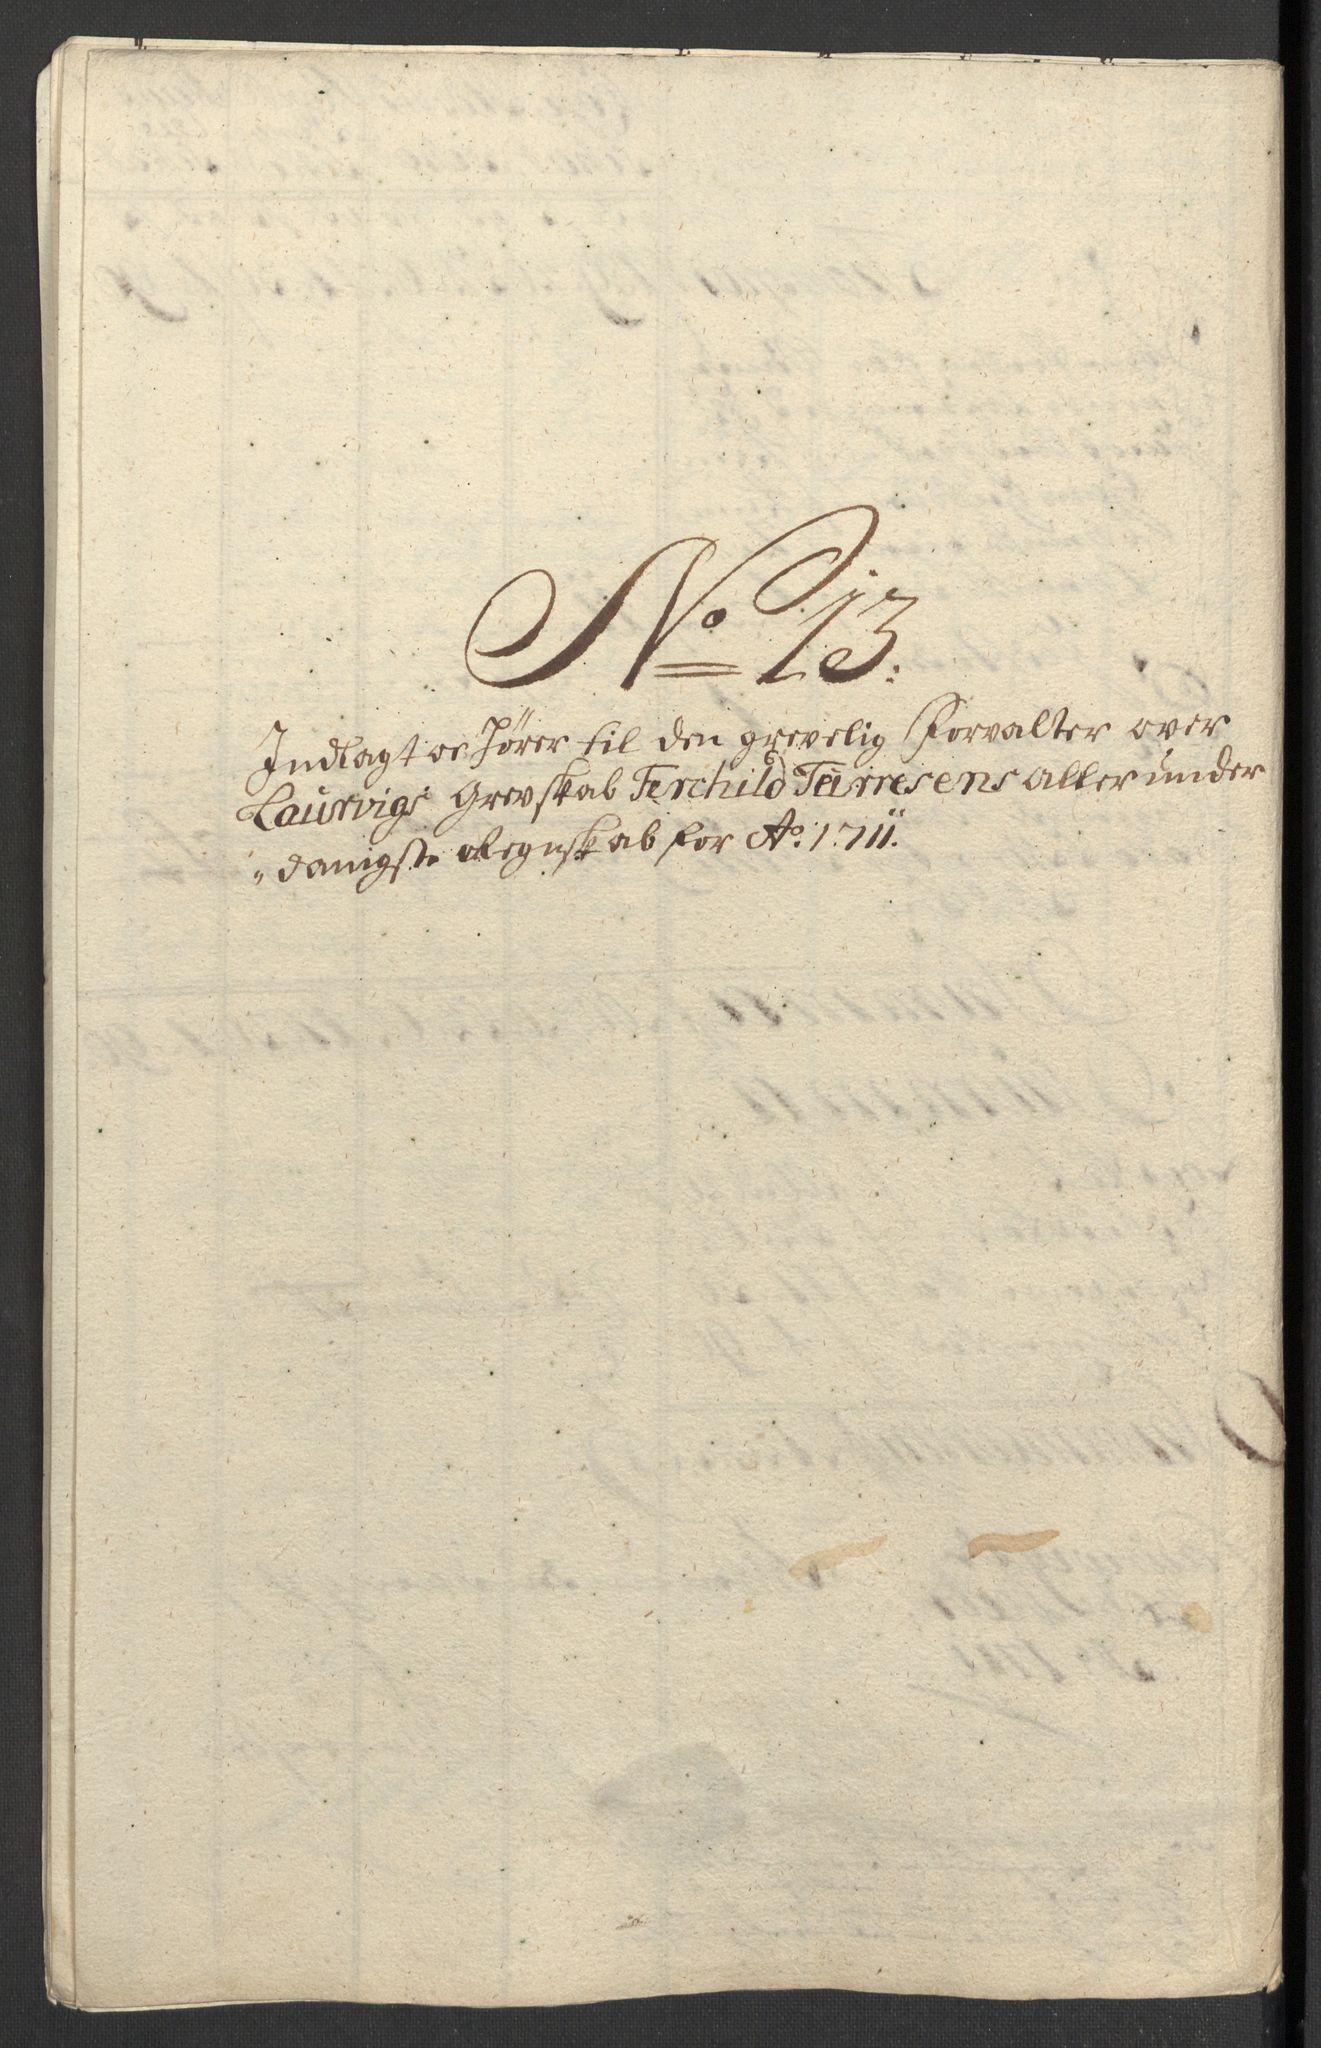 No 13:
Indlagt oc hører til den grevelig Forvalter over
Laurvigs Grevskab Terchild Turresens aller under
„danigste Regnskab for Ao: 1711.